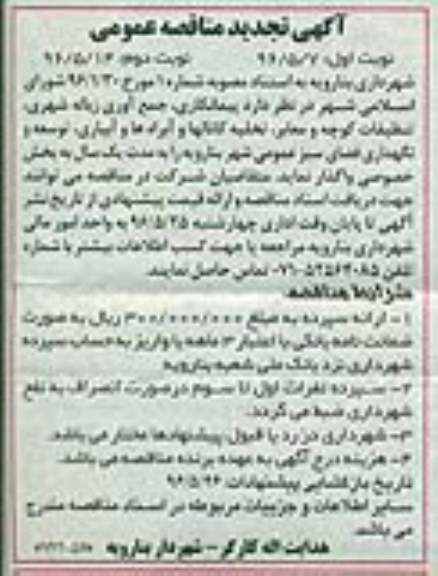 آگهی تجدید مناقصه عمومی
نوبت اول: ۹۶/۵/۷ نوبت دوم: ۹۶/۵/۱۴
شهرداری بنارویه به استناد مصوبه شماره ۱ مورخ ۹۶/۱/۳۰ شورای
اسلامی شهر در نظر دارد پیمانکاری، جمع آوری زباله شهری،
تنظیفات کوچه و معابر، تخلیه کانالها و آبراه ها و آبیاری، توسعه و
نگهداری فضای سبز عمومی شهر بنارویه را به مدت یک سال به بخش
خصوصی واگذار نماید. متقاضیان شرکت در مناقصه می توانند
جهت دریافت اسناد مناقصه و ارائه قیمت پیشنهادی از تاریخ نشر
آگهی تا پایان وقت اداری چهارشنبه ۹۶/۵/۲۵ به واحد امور مالی
شهرداری بنارویه مراجعه یا جهت کسب اطلاعات بیشتر با شماره
تلفن ۵۲۵۶۴۰۸۵-۰۷۱ تماس حاصل نمایند.
شرایط مناقصه:
۱- ارائه سپرده به مبلغ ۳۰۰/۰۰۰/۰۰۰ ریال به صورت
ضمانت نامه بانکی با اعتبار ۳ ماهه یا واریز به حساب سپرده
شهرداری نزد بانک ملی شعبه بنارویه
۲- سپرده نفرات اول تا سوم درصورت انصراف به نفع
شهرداری ضبط می گردد.
۳- شهرداری در رد یا قبول پیشنهادها مختار می باشد.
۴- هزینه درج آگهی به عهده برنده مناقصه می باشد.
تاریخ بازگشایی پیشنهادات: ۹۶/۵/۲۶
سایر اطلاعات و جزییات مربوطه در اسناد مناقصه مندرج
می باشد.
هدایت اله کارگر - شهردار بنارویه